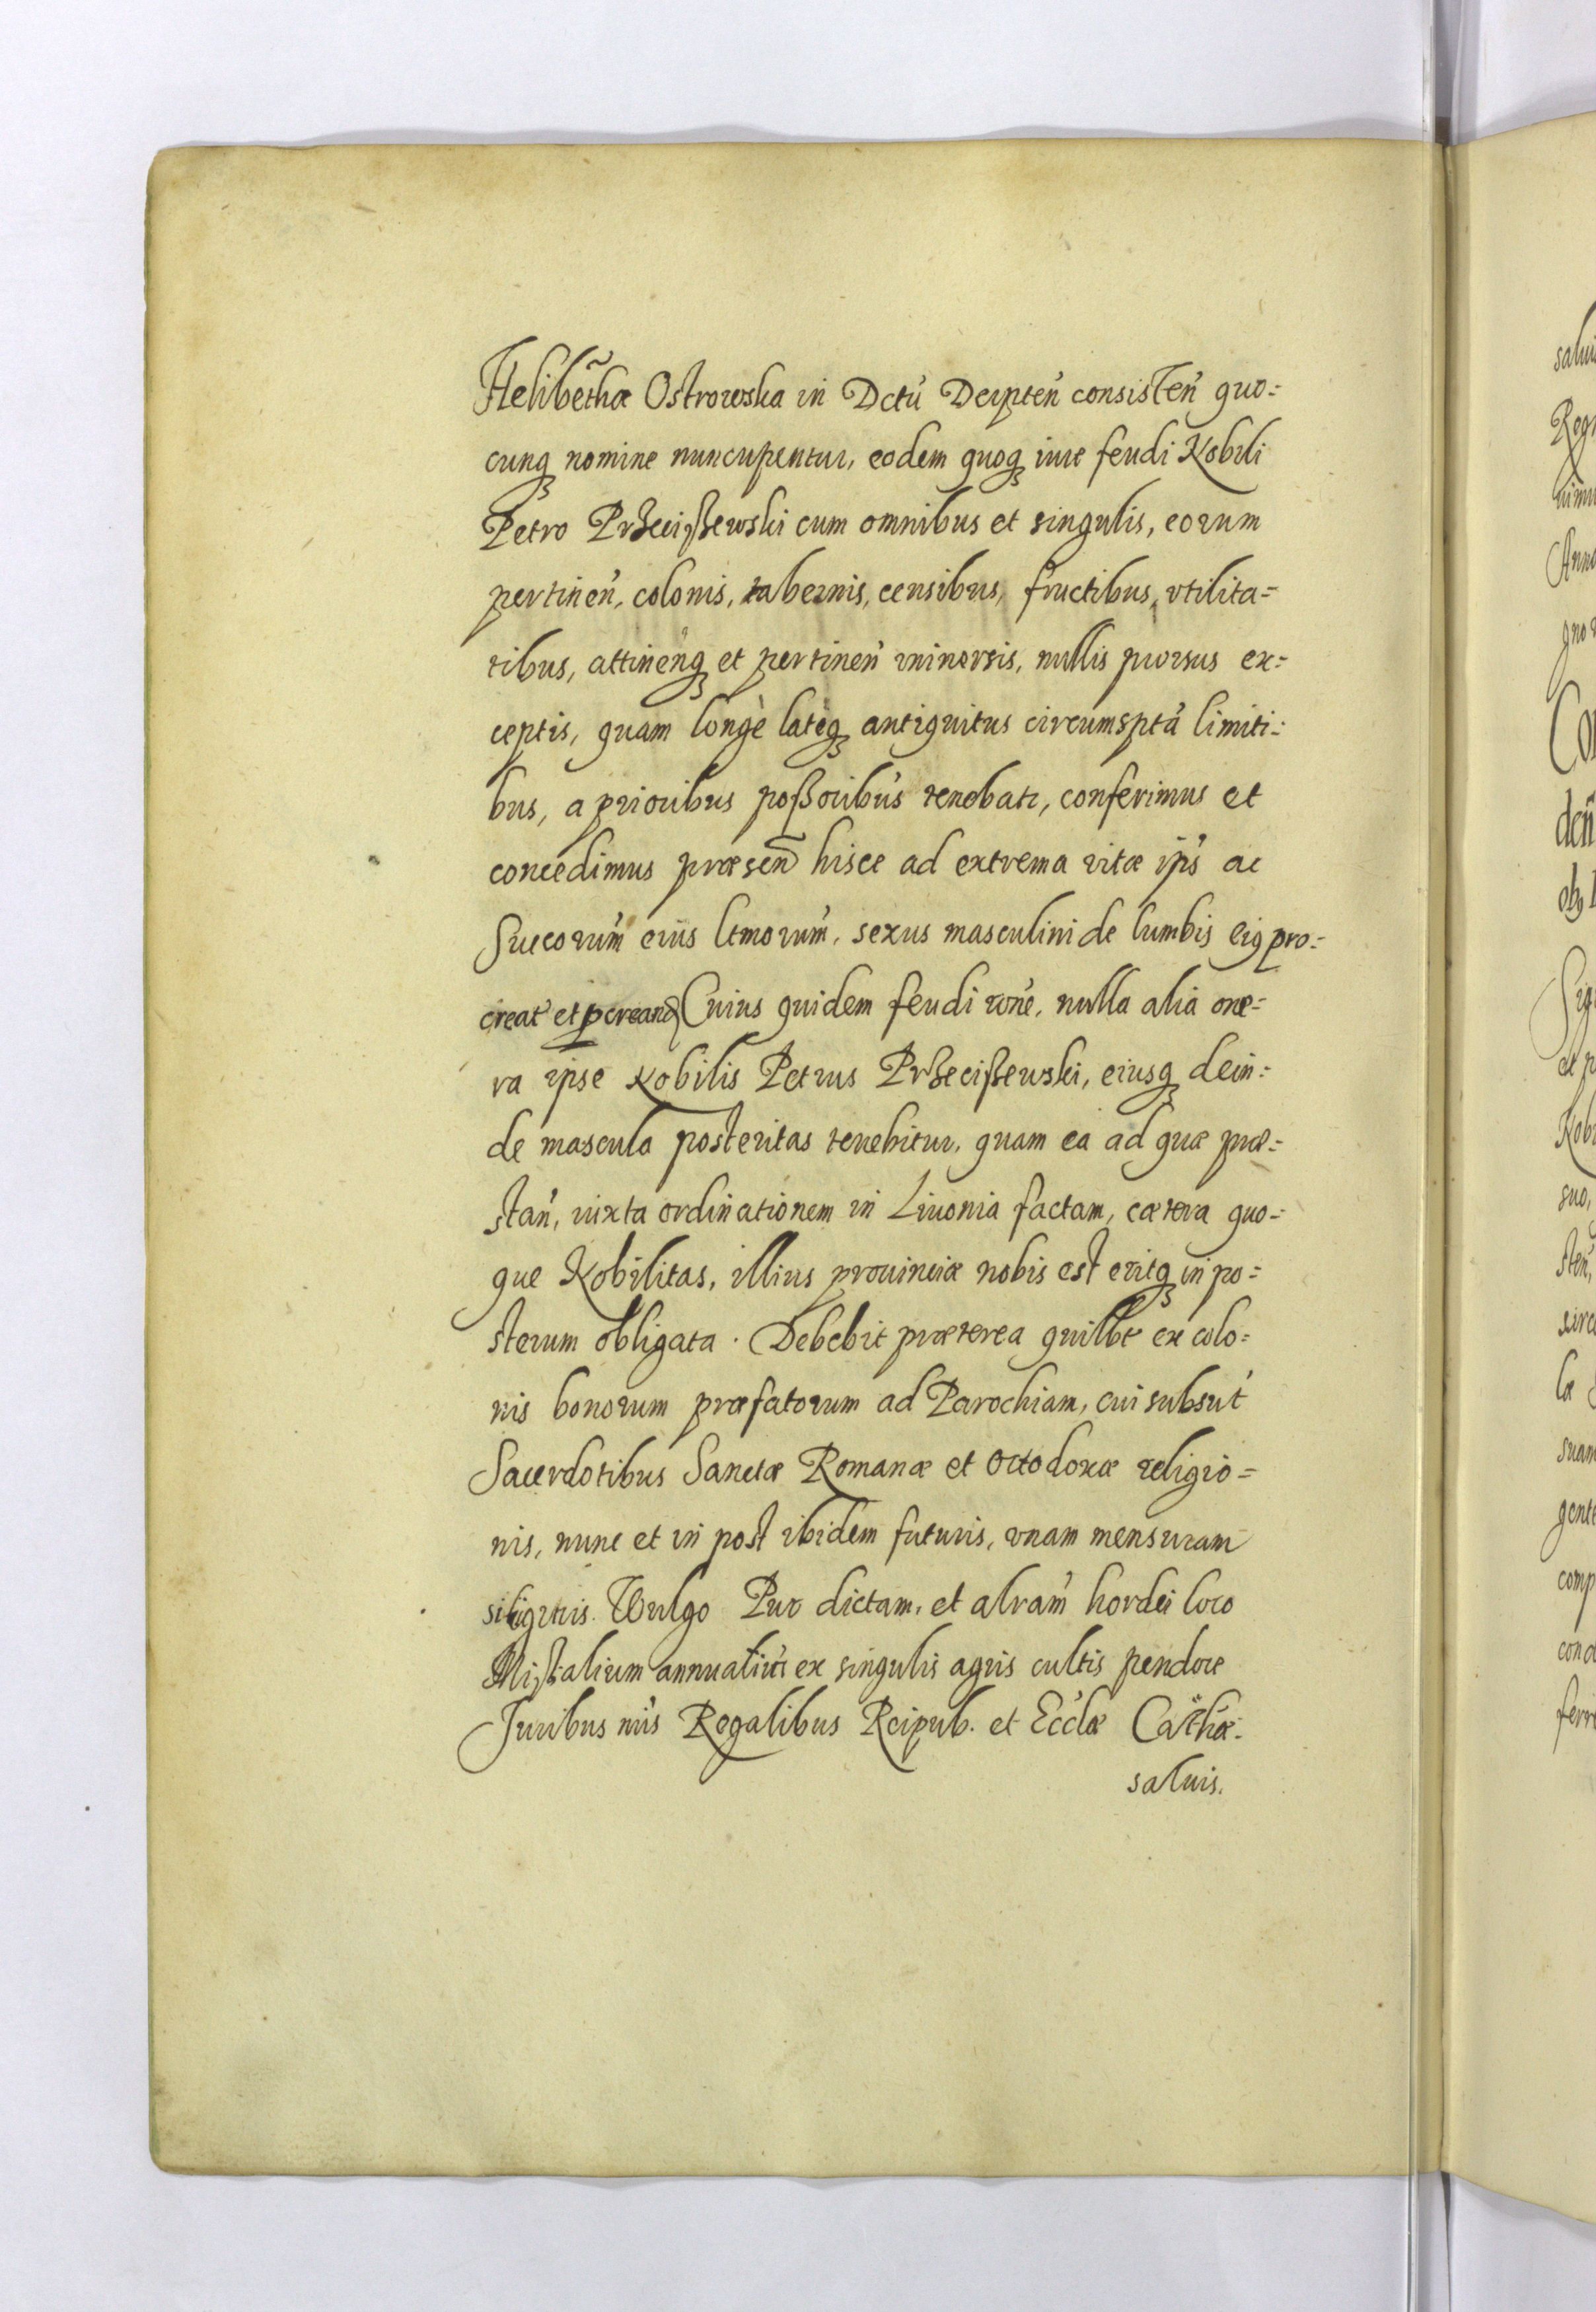 Helibethæ Ostrowska in Dctu Derpten consisten quo=
cunq nomine nuncupentur, eodem quoq iure feudi Nobili
Petro Przeciszewski cum omnibus et singulis, eorum
pertinen, colonis, tabernis, censibus, fructibus, vtilita=
tibus, attinenq et pertinen vniversis, nullis prorsus ex=
ceptis, quam longè latèq antiquitus circumsptâ limiti=
bus, a prioribus poßoribus tenebatr, conferimus et
concedimus præsen hisce ad extrema vitæ ips ac
Succorum eius ltmorum, sexus masculini de lumbis eiq pro=
creat et pcreand Cuius quidem feudi rone, nulla alia one=
ra ipse Nobilis Petrus Przecißewski, eiusq dein=
de mascula posteritas tenebitur, quam ea ad quæ præ=
stan, iuxta ordinationem in Liuonia factam, cætera quo=
que Nobilitas, illius prouinciæ nobis est eritq in po=
sterum obligata. Debebit præterea quilbt ex colo=
nis bonorum præfatorum ad Parochiam, cui subsut
Sacerdotibus Sanctæ Romanæ et Ortodoxæ religio=
nis, nunc et in post ibidem futuris, vnam mensuram
siliginis. Wulgo Pur dictam, et alram hordei loco
Missalium annualiu ex singulis agris cultis pendere
Juribus nris Regalibus Reipub. et Ecclæ Cathæ.
saluis.